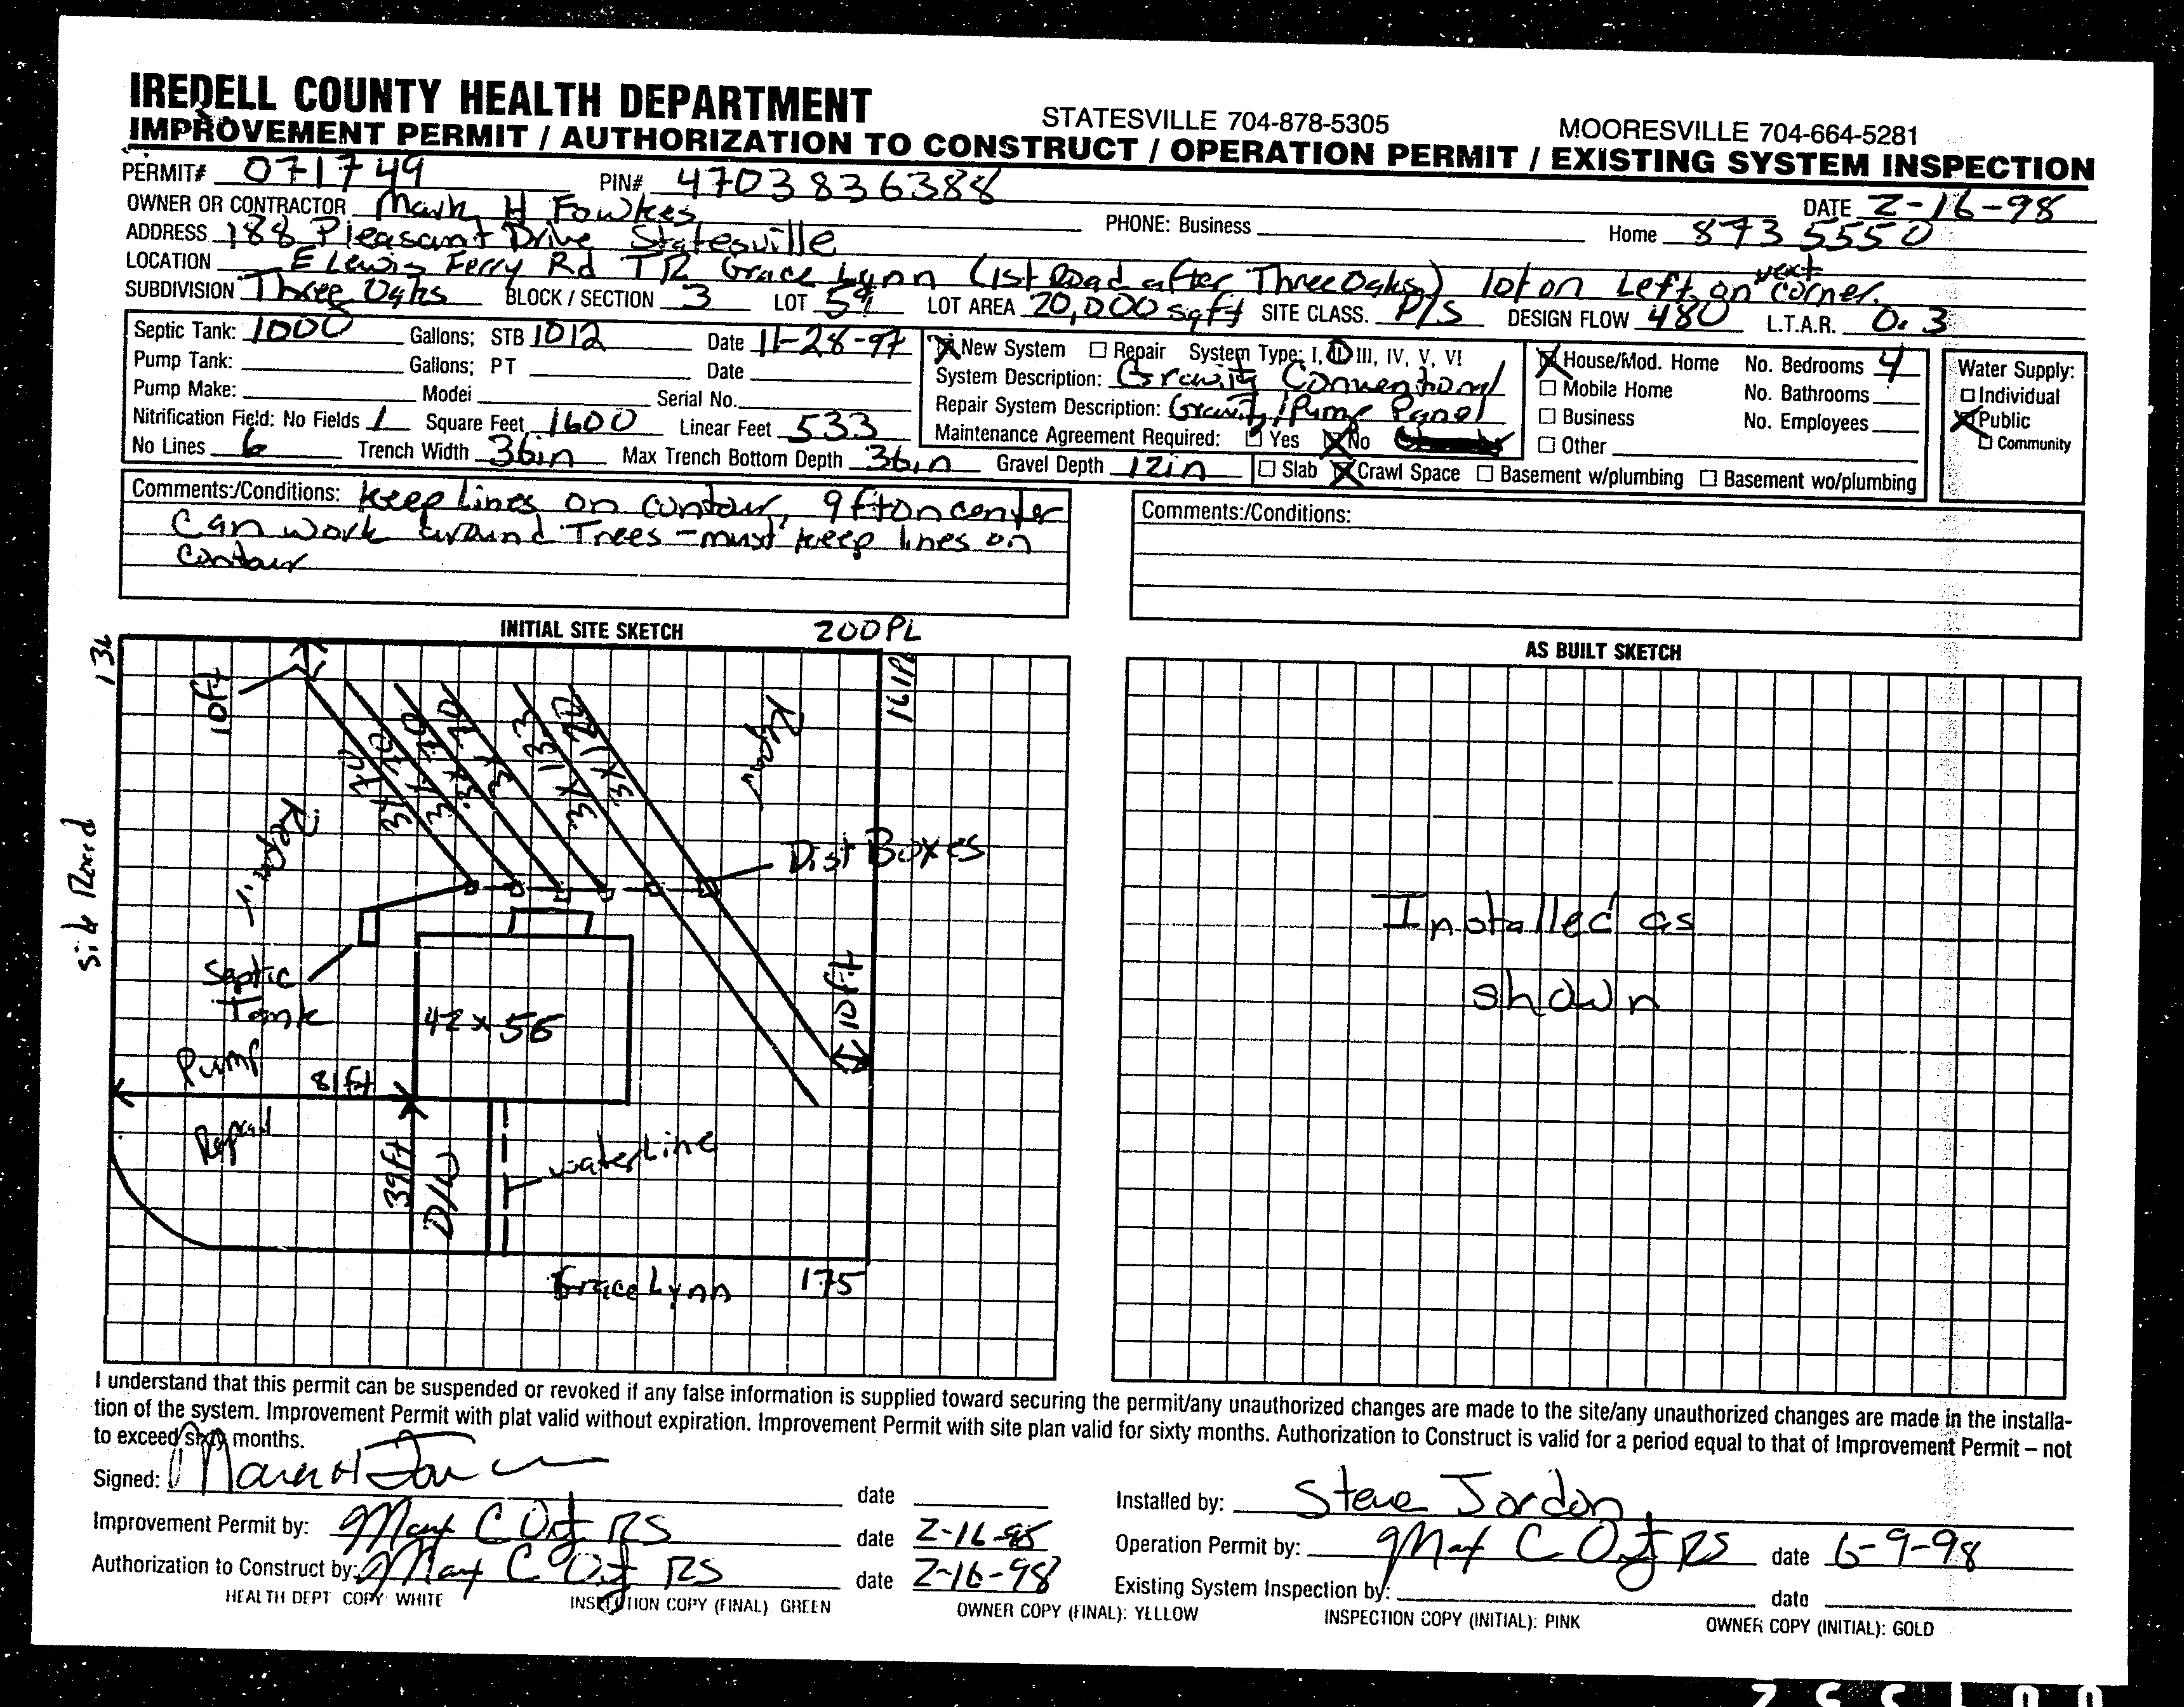 IREDELL COUNTY HEALTH DEPARTMENT STATESVILLE 704-878-5305 MOORESVILLE 704-664-5281
IMPROVEMENT PERMIT / AUTHORIZATION TO CONSTRUCT / OPERATION PERMIT / EXISTING SYSTEM INSPECTION
PERMIT# 071749 PIN# 4703836388 DATE 2-16-98
OWNER OR CONTRACTOR Mark H Fowkes PHONE: Business Home 873 5550
ADDRESS 188 Pleasant Drive Statesville
LOCATION E Lewis Ferry Rd TR Grace Lynn (1st Road after Three Oaks) lot on Left on next corner.
SUBDIVISION Three Oaks BLOCK / SECTION 3 LOT 59 LOT AREA 20,000 sqft SITE CLASS. P/S DESIGN FLOW 480 L.T.A.R. 0.3
Septic Tank: 1000 Gallons; STB 1012 Date 11-28-97
Pump Tank: Gallons; PT Date
Pump Make: Model Serial No.
Nitrification Field: No Fields 1 Square Feet 1600 Linear Feet 533
No Lines 6 Trench Width 36in Max Trench Bottom Depth 36in Gravel Depth 12in
New System Repair System Type: I, II, III, IV, V, VI
System Description: Gravity Conventional
Repair System Description: Gravity/Pump Panel
Maintenance Agreement Required: Yes No
House/Mod. Home No. Bedrooms 4
Mobile Home No. Bathrooms
Business No. Employees
Other
Slab Crawl Space Basement w/plumbing Basement wo/plumbing
Water Supply:
Individual
Public
Community
Comments:/Conditions: Keep Lines on contour, 9 ft on center
Can work around Trees - must keep lines on
contour
Comments:/Conditions:
INITIAL SITE SKETCH 200PL
136
161PL
10ft
3x70
3x70
3x70
3x133
3x120
Repair
Repair
Side Road
Dist Boxes
Septic
Tank
42 x 56
10ft
Pump
Repair
81ft
39ft
D/W
waterLine
Grace Lynn 175
AS BUILT SKETCH
Installed as
shown
I understand that this permit can be suspended or revoked if any false information is supplied toward securing the permit/any unauthorized changes are made to the site/any unauthorized changes are made in the installa-
tion of the system. Improvement Permit with plat valid without expiration. Improvement Permit with site plan valid for sixty months. Authorization to Construct is valid for a period equal to that of Improvement Permit – not
to exceed sixty months.
Signed: date
Improvement Permit by: RS date 2-16-98
Authorization to Construct by: RS date 2-16-98
Installed by: Steve Jordon
Operation Permit by: RS date 6-9-98
Existing System Inspection by: date
HEALTH DEPT COPY: WHITE INSPECTION COPY (FINAL): GREEN OWNER COPY (FINAL): YELLOW INSPECTION COPY (INITIAL): PINK OWNER COPY (INITIAL): GOLD